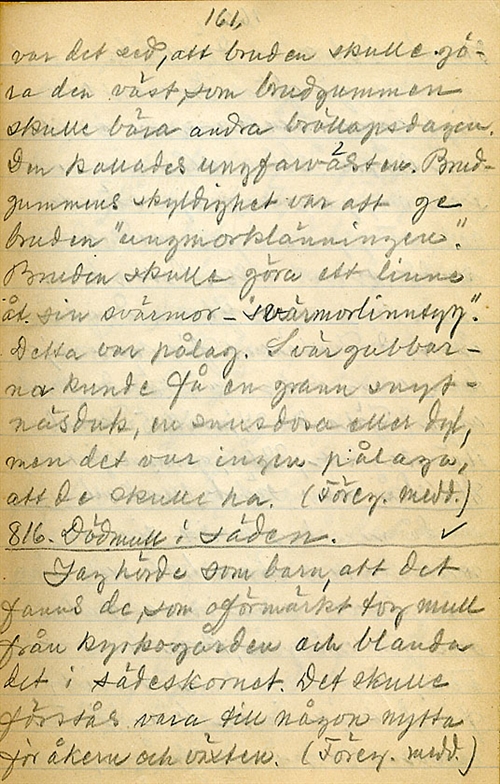 161.
var det sed, att bruden skulle gö-
ra den väst, som brudgummen
skulle bära andra bröllopsdagen.
Den kallades ungfarvästen. Brud-
gummens skyldighet var att ge
bruden "ungmorklänningen".
Bruden skulle göra ett linne
åt sin svärmor - "svärmorlinntyg".
Detta var pålag. Svärgubbar-
na kunde få en grann snyt-
näsduk, en snusdosa eller dyl,
men det var ingen pålaga,
att de skulle ha. (Föreg. medd.)
816. Dödmull i säden. ✓
Jag hörde som barn, att det
fanns de, som oförmärkt tog mull
från kyrkogården och blanda
det i sädeskornet. Det skulle
förstås vara till någon nytta
för åkern och växten. (Föreg. medd.)